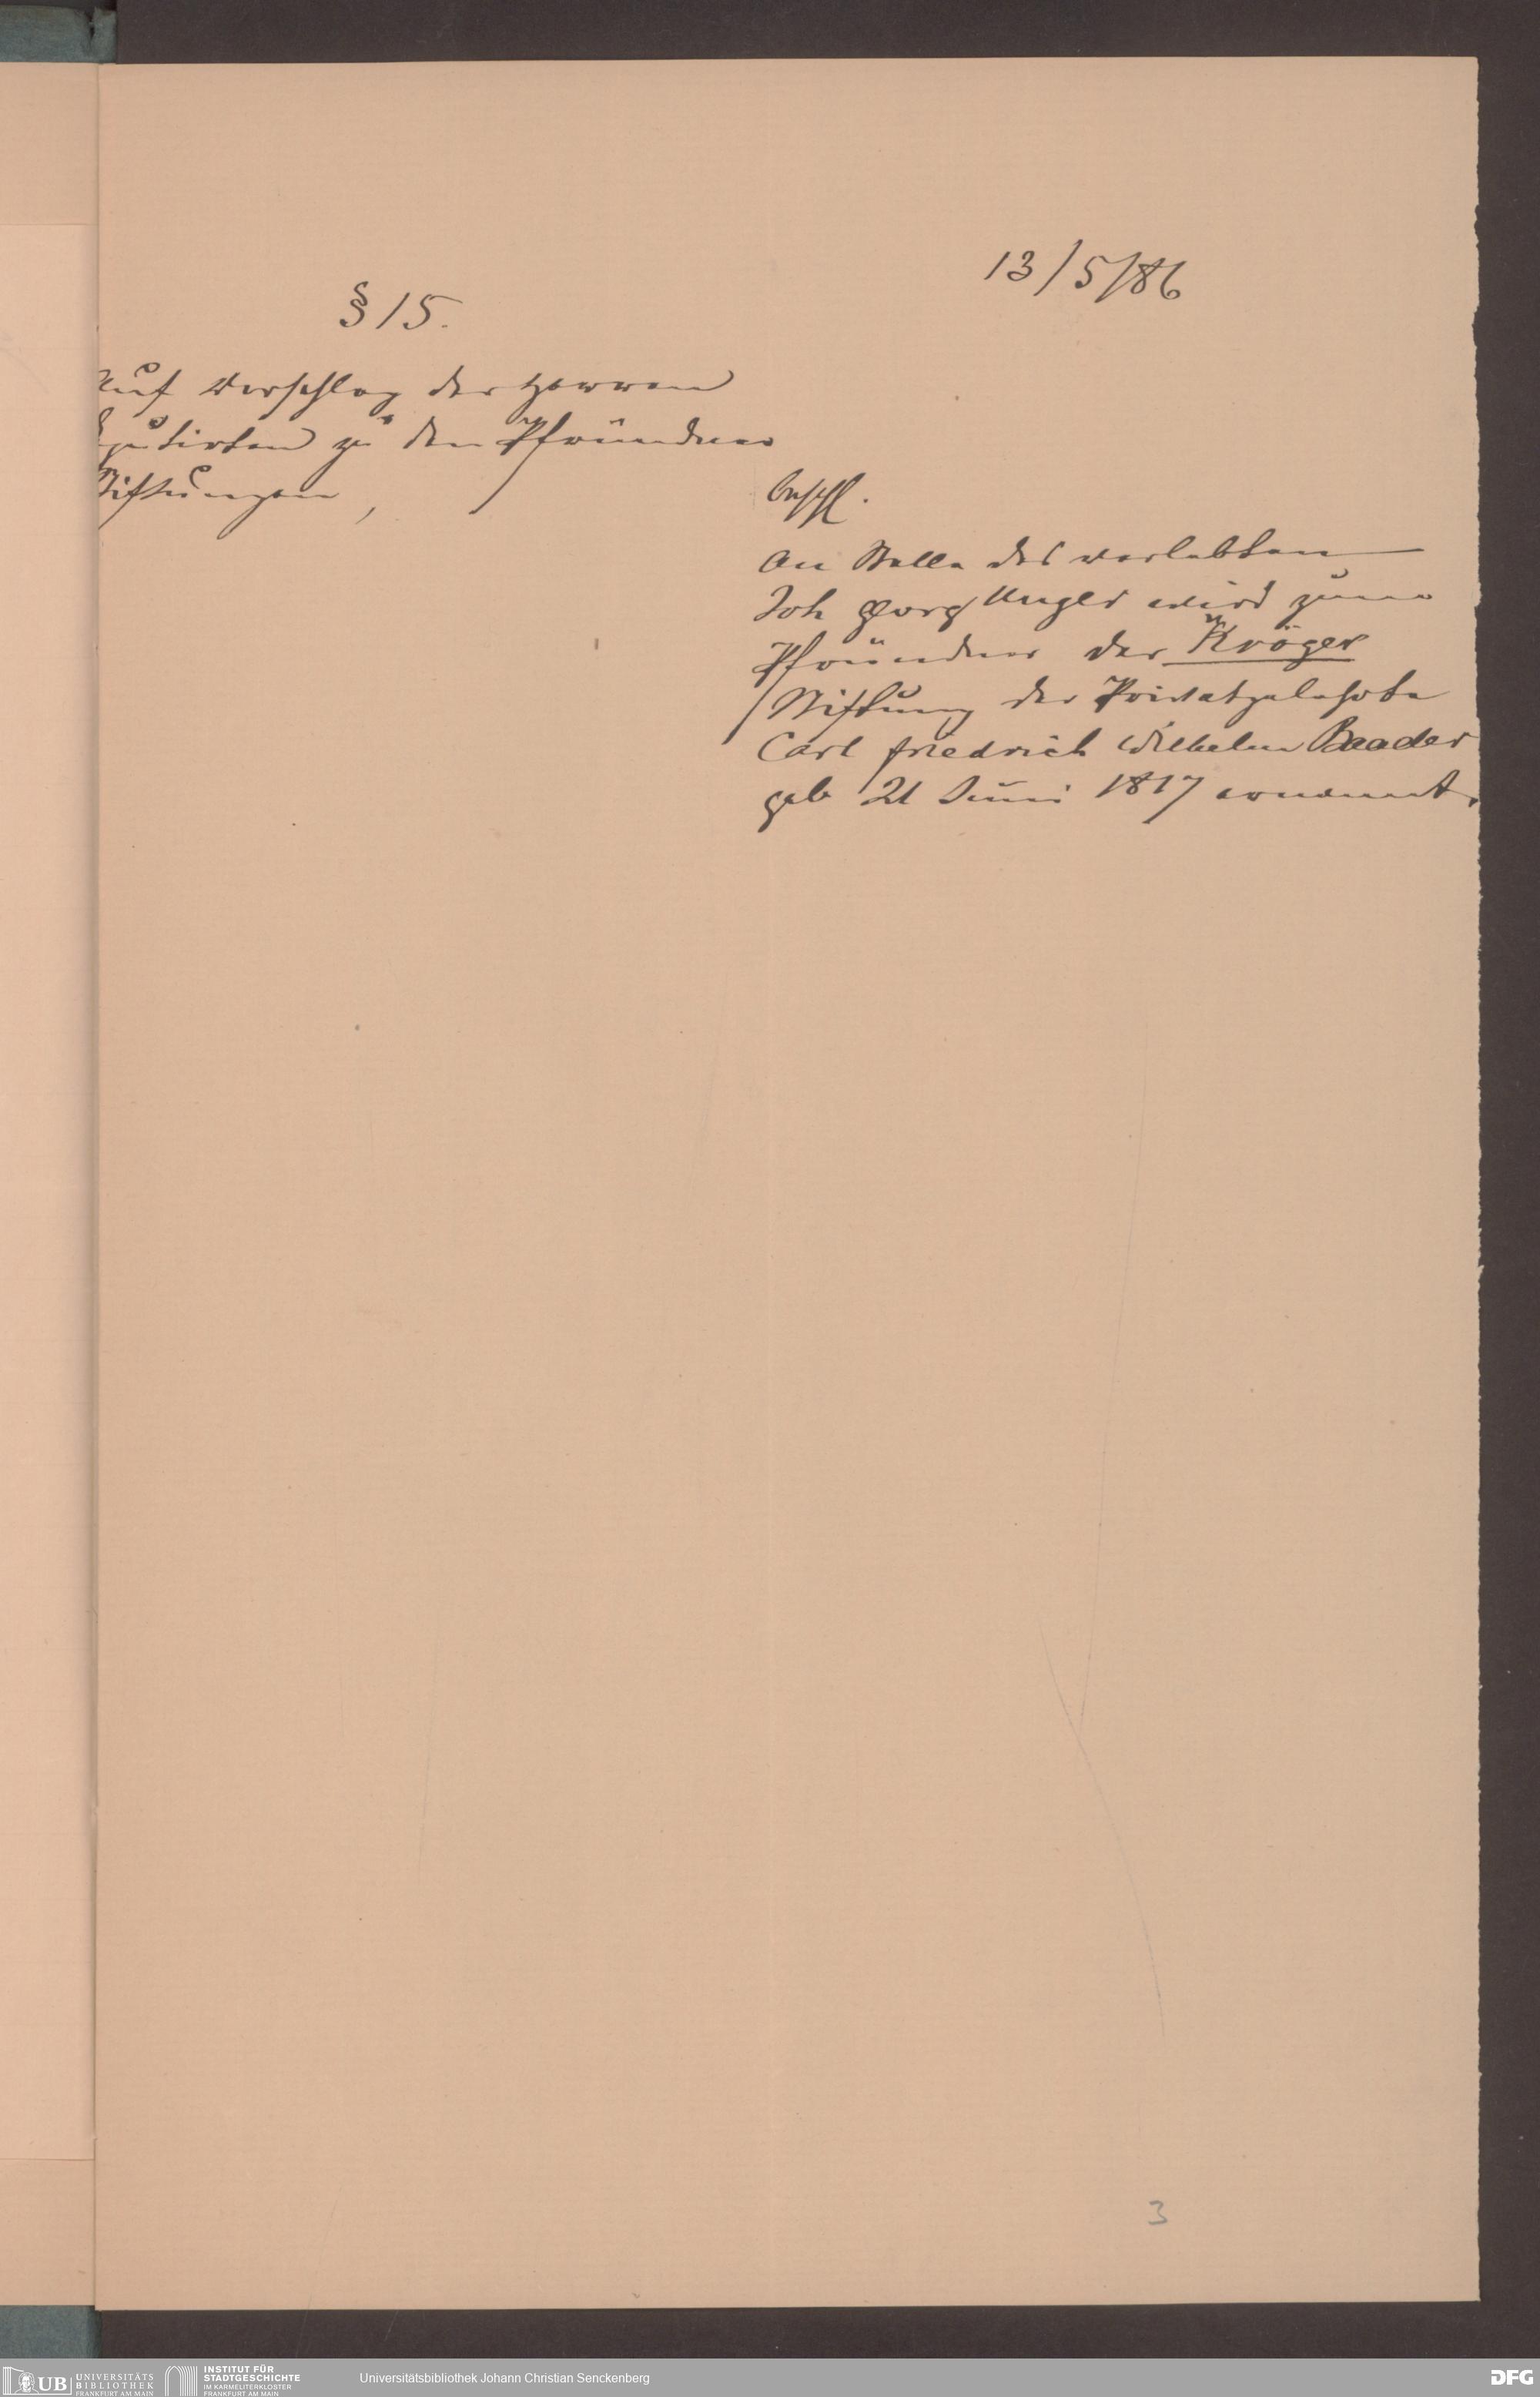 13/5/86
§ 15.
Auf Vorschlag der Herren
Deputirten zu den Pfründner
Stiftungen,
beschl.
An Stelle des verlebten
Joh Georg Unger wird zum
Pfründner der Kröger
Stiftung der Privatgelehrte
Carl Friedrich Wilhelm Baader
geb 21 Juni 1817 ernannt.
3
UB UNIVERSITÄTS BIBLIOTHEK FRANKFURT AM MAIN
INSTITUT FÜR STADTGESCHICHTE IM KARMELITERKLOSTER FRANKFURT AM MAIN
Universitätsbibliothek Johann Christian Senckenberg
DFG